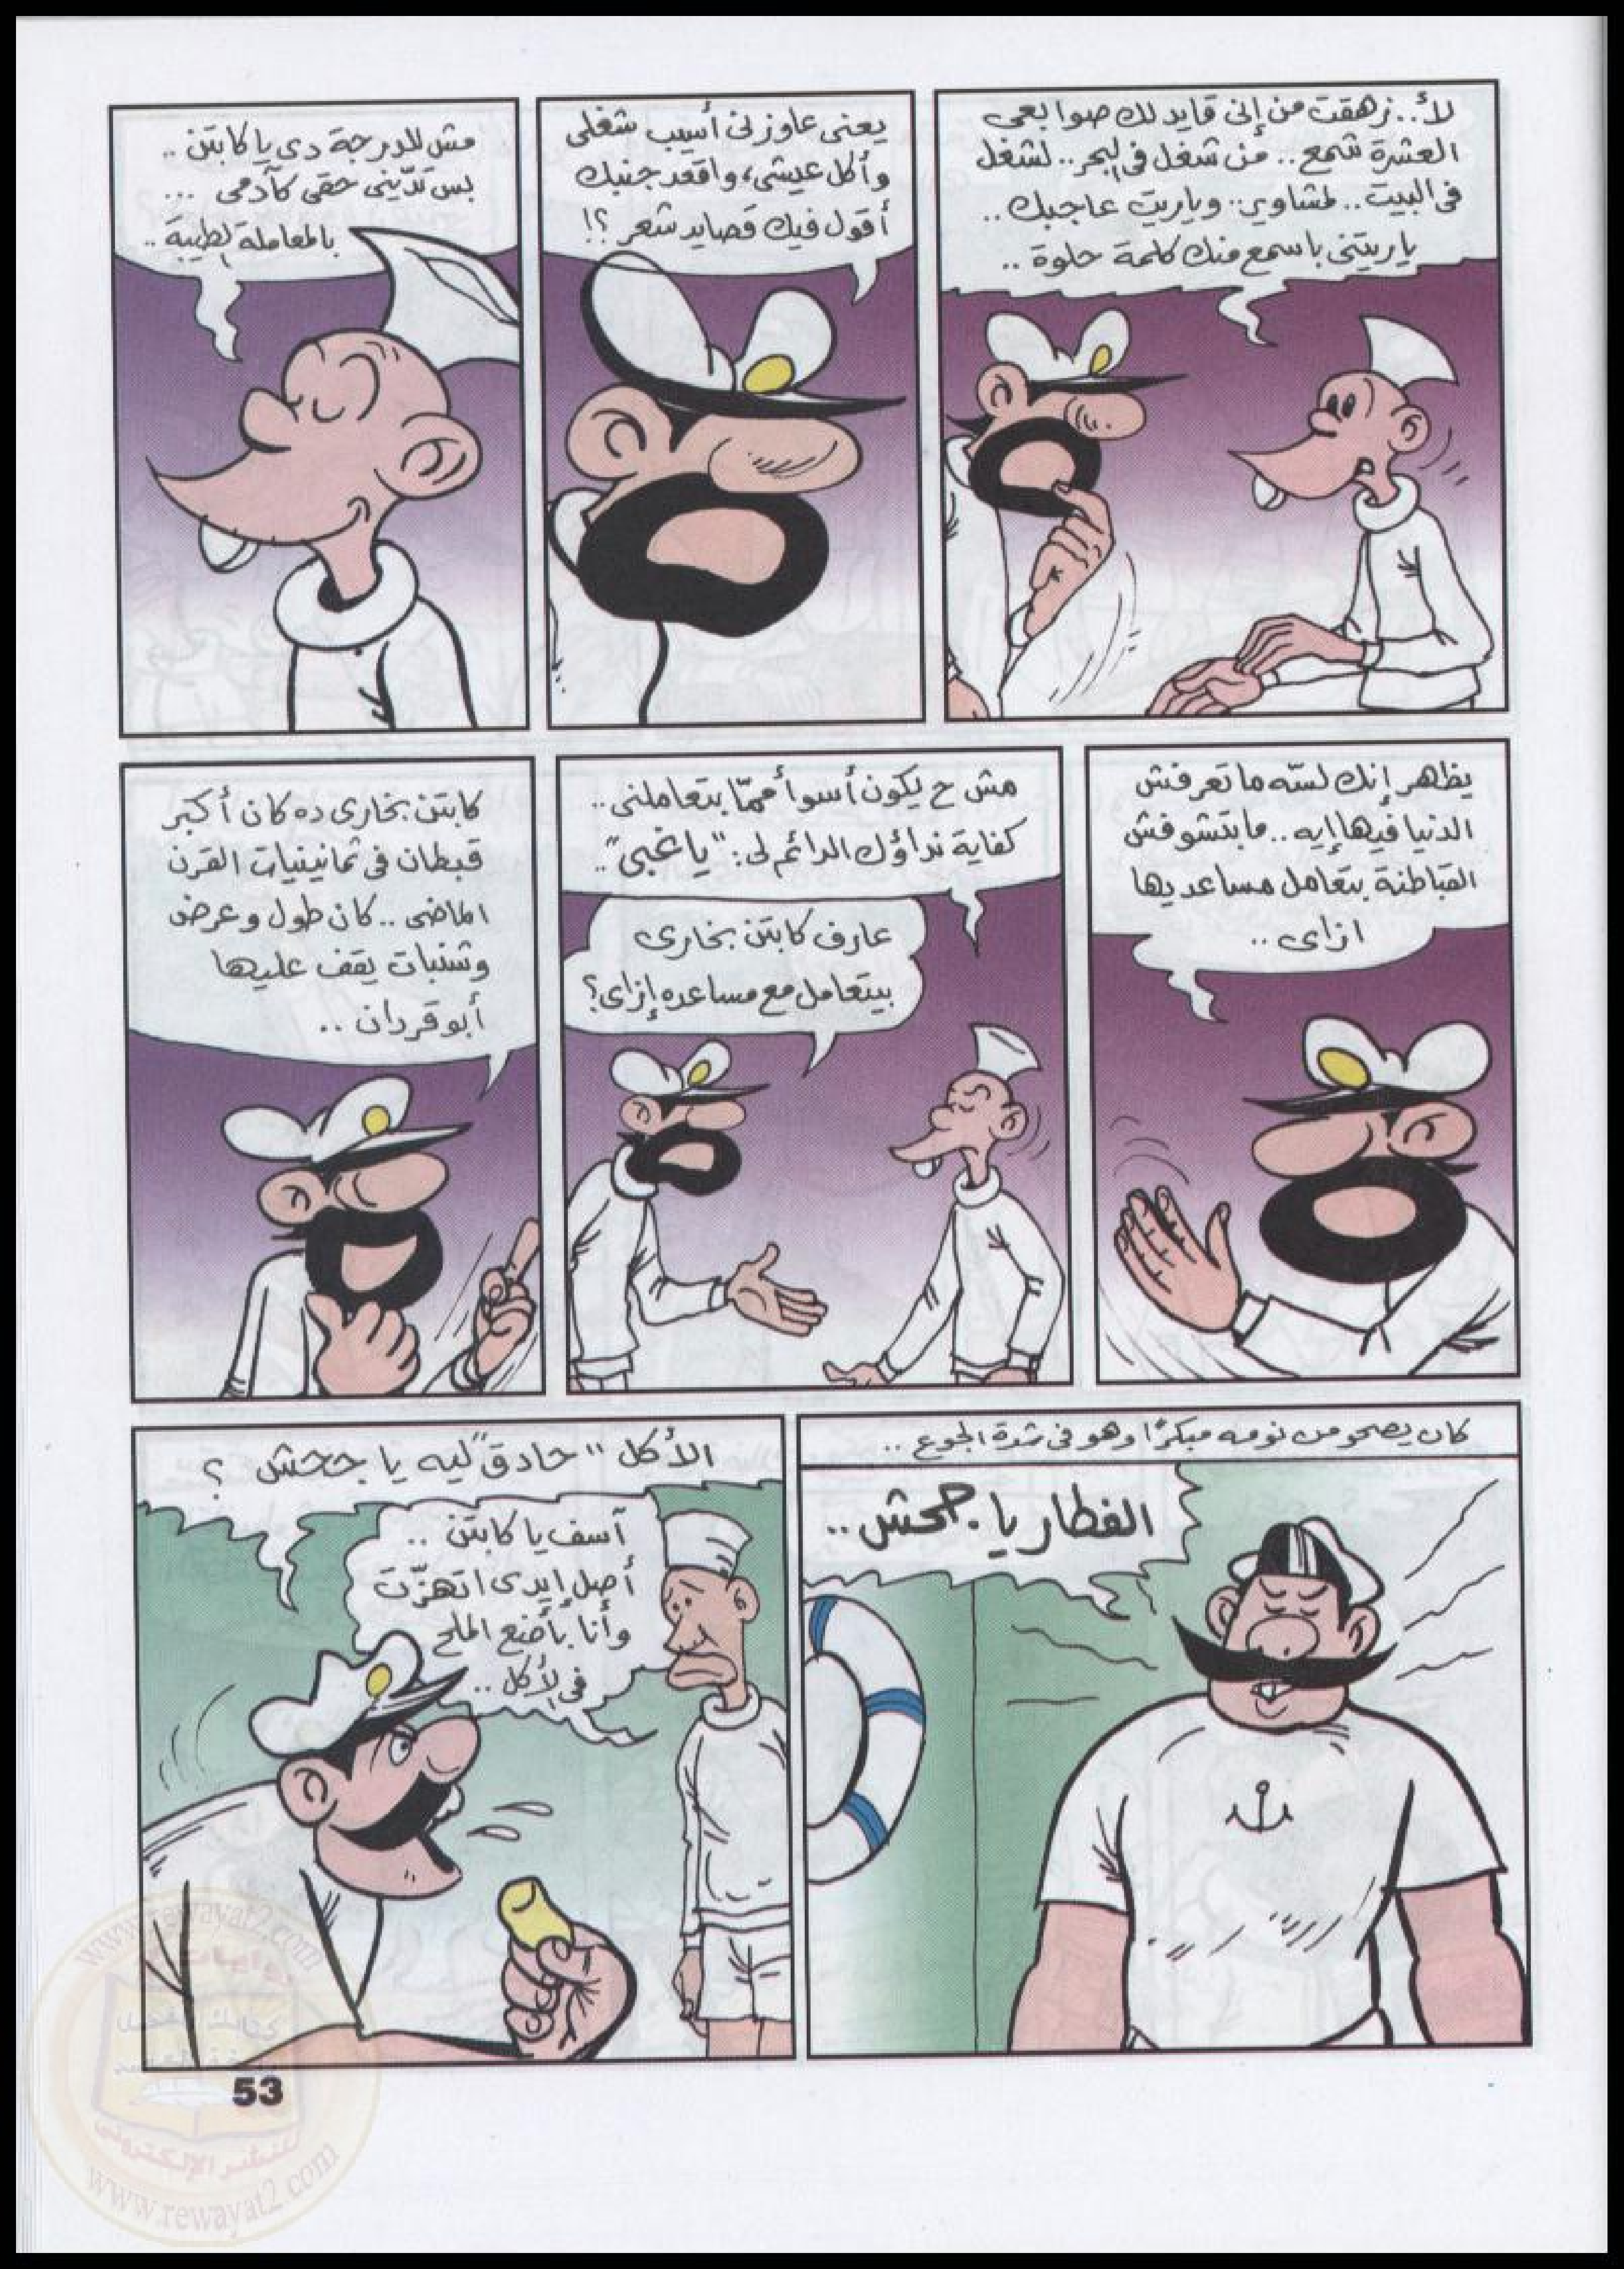 لأ.. زهقت من إنى قايد لك صوابعى
العشرة شمع.. من شغل فى البحر.. لشغل
فى البيت.. لمشاوير.. وياريت عاجبك..
ياريتنى باسمع منك كلمة حلوة..
يعنى عاوزنى أسيب شغلى
وأكل عيشى، واقعد جنبك
أقول فيك قصايد شعر؟!
مش للدرجة دى يا كابتن..
بس تدّينى حقى كآدمى ...
بالمعاملة الطيبة..
يظهر إنك لسّه ما تعرفش
الدنيا فيها إيه.. ما بتشوفش
القباطنة بتعامل مساعديها
ازاى..
مش ح يكون أسوأ ممّا بتعاملنى..
كفاية نداؤك الدائم لى: "يا غبى"..
عارف كابتن بخارى
بيتعامل مع مساعده إزاى؟
كابتن بخارى ده كان أكبر
قبطان فى ثمانينيات القرن
الماضى.. كان طول وعرض
وشنبات يقف عليها
أبو قردان..
كان يصحو من نومه مبكرًا وهو فى شدة الجوع..
الفطار يا جحش..
الأكل "حادق" ليه يا جحش؟
آسف يا كابتن..
أصل إيدى اتهزّت
وأنا بأضع الملح
فى الأكل..
53
www.rewayat2.com
www.rewayat2.com